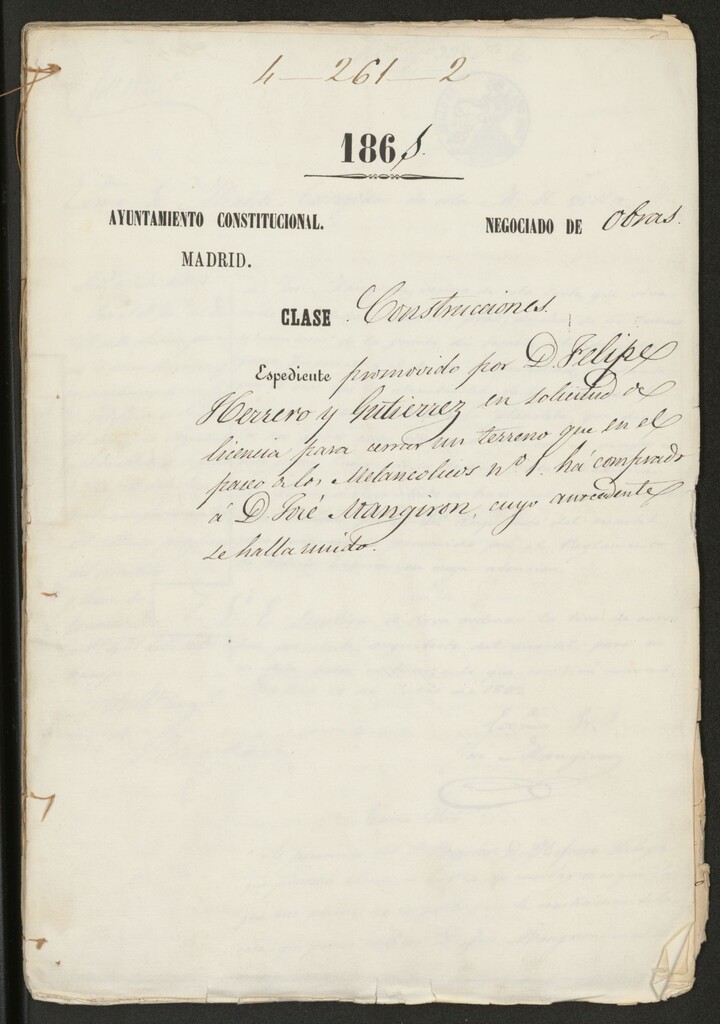 4-261-2
186
AYUNTAMIENTO CONSTITUCIONAL.
NEGOCIADO DE Obras.
MADRID.
CLASE Construcciones.
Espediente promovido por D. Felipe
Herrero y Gutierrez en solicitud de
licencia para cerrar un terreno que en el
paseo de los Melancolicos nº 1. há comprado
á D. José Mangiron, cuyo antecedente
se halla unido.